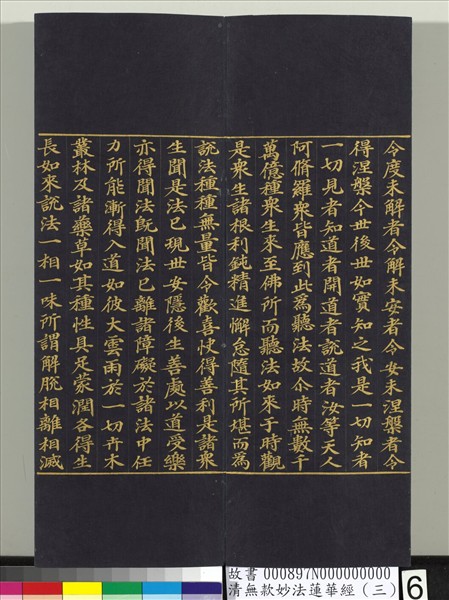 令度未解者令解未安者令安未涅槃者令
得涅槃今世後世如實知之我是一切知者
一切見者知道者開道者說道者汝等天人
阿脩羅眾皆應到此為聽法故尒時無數千
萬億種眾生來至佛所而聽法如來于時觀
是眾生諸根利鈍精進懈怠隨其所堪而為
說法種種無量皆令歡喜快得善利是諸眾
生聞是法已現世安隱後生善處以道受樂
亦得聞法既聞法已離諸障礙於諸法中任
力所能漸得入道如彼大雲雨於一切卉木
叢林及諸藥草如其種性具足蒙潤各得生
長如來說法一相一味所謂解脫相離相滅
故書 000897N000000000
清無款妙法蓮華經 (三)
6